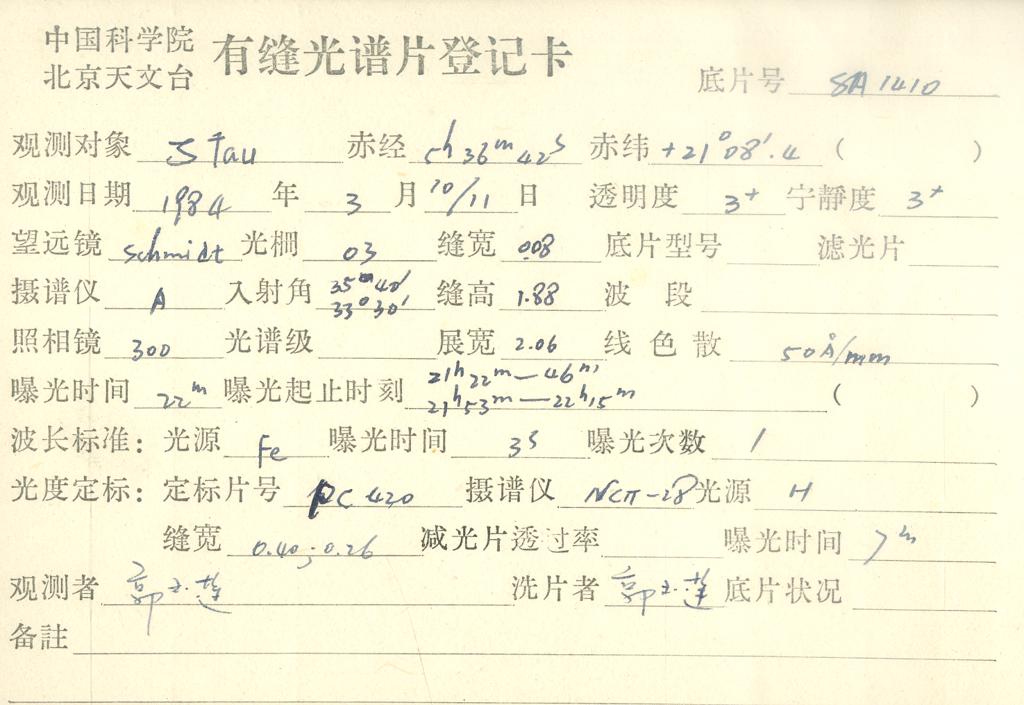 中国科学院
北京天文台
有缝光谱片登记卡
底片号 SA1410
观测对象 ζ Tau 赤经 5h 36m 42s 赤纬 +21°08′.4 ( )
观测日期 1984 年 3 月 10/11 日 透明度 3+ 宁静度 3+
望远镜 Schmidt 光栅 03 缝宽 0.08 底片型号 滤光片
摄谱仪 A 入射角 35°40′ 33°30′ 缝高 1.88 波段
照相镜 300 光谱级 展宽 2.06 线色散 50Å/mm
曝光时间 22m 曝光起止时刻 21h22m—46m ( )
21h53m—22h15m
波长标准: 光源 Fe 曝光时间 3s 曝光次数 1
光度定标: 定标片号 PC420 摄谱仪 光源 H
缝宽 0.40;0.26 减光片透过率 曝光时间 7m
观测者 郭玉莲 洗片者 郭玉莲 底片状况
备註